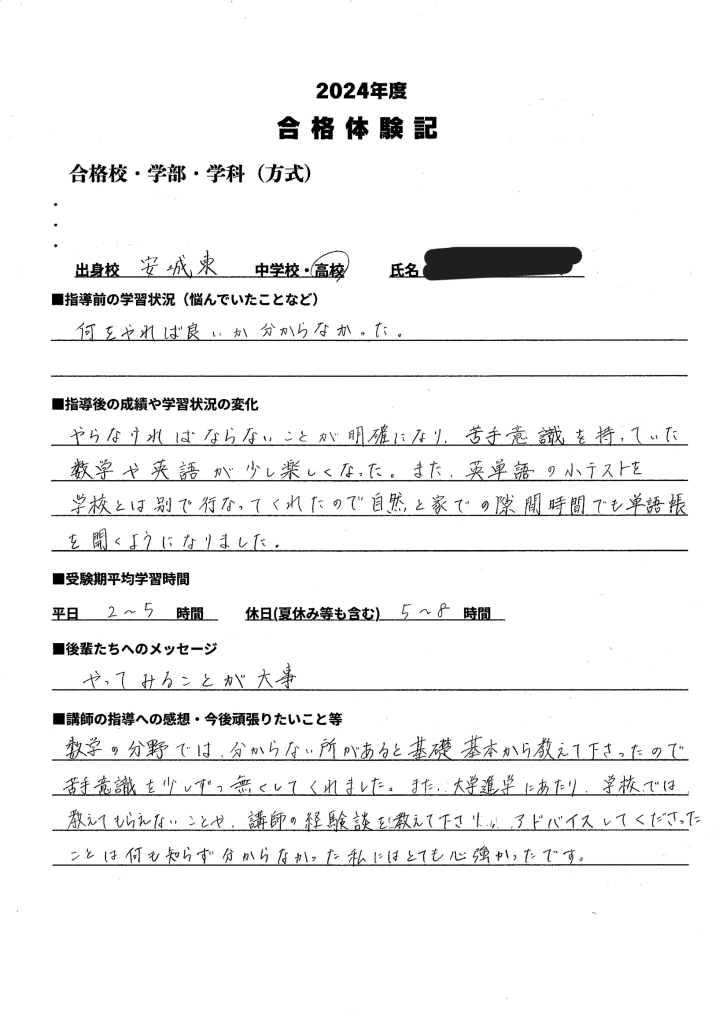 2024年度
合格体験記
合格校・学部・学科（方式）
・
・
・
出身校 安城東 中学校・高校 氏名
■指導前の学習状況（悩んでいたことなど）
何をやれば良いか分からなかった。
■指導後の成績や学習状況の変化
やらなければならないことが明確になり、苦手意識を持っていた
数学や英語が少し楽しくなった。また、英単語の小テストを
学校とは別で行なってくれたので自然と家での隙間時間でも単語帳
を開くようになりました。
■受験期平均学習時間
平日 2～5 時間 休日(夏休み等も含む) 5～8 時間
■後輩たちへのメッセージ
やってみることが大事
■講師の指導への感想・今後頑張りたいこと等
数学の分野では、分からない所があると基礎基本から教えて下さったので
苦手意識を少しずつ無くしてくれました。また、大学進学にあたり、学校では
教えてもらえないことや、講師の経験談を教えて下さり、アドバイスしてくださった
ことは何も知らず分からなかった私にはとても心強かったです。